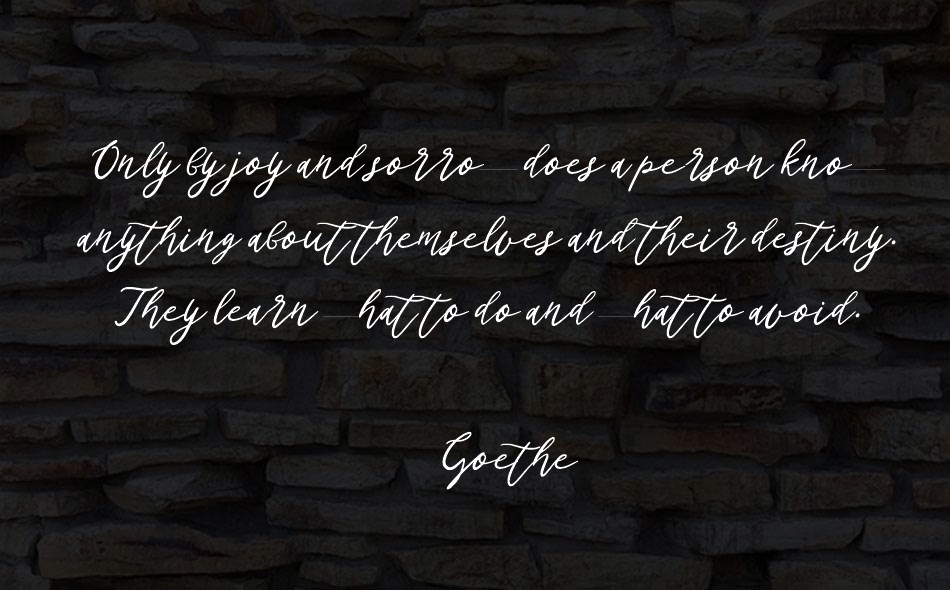 Only by joy and sorro does a person kno
anything about themselves and their destiny.
They learn hat to do and hat to avoid.
Goethe